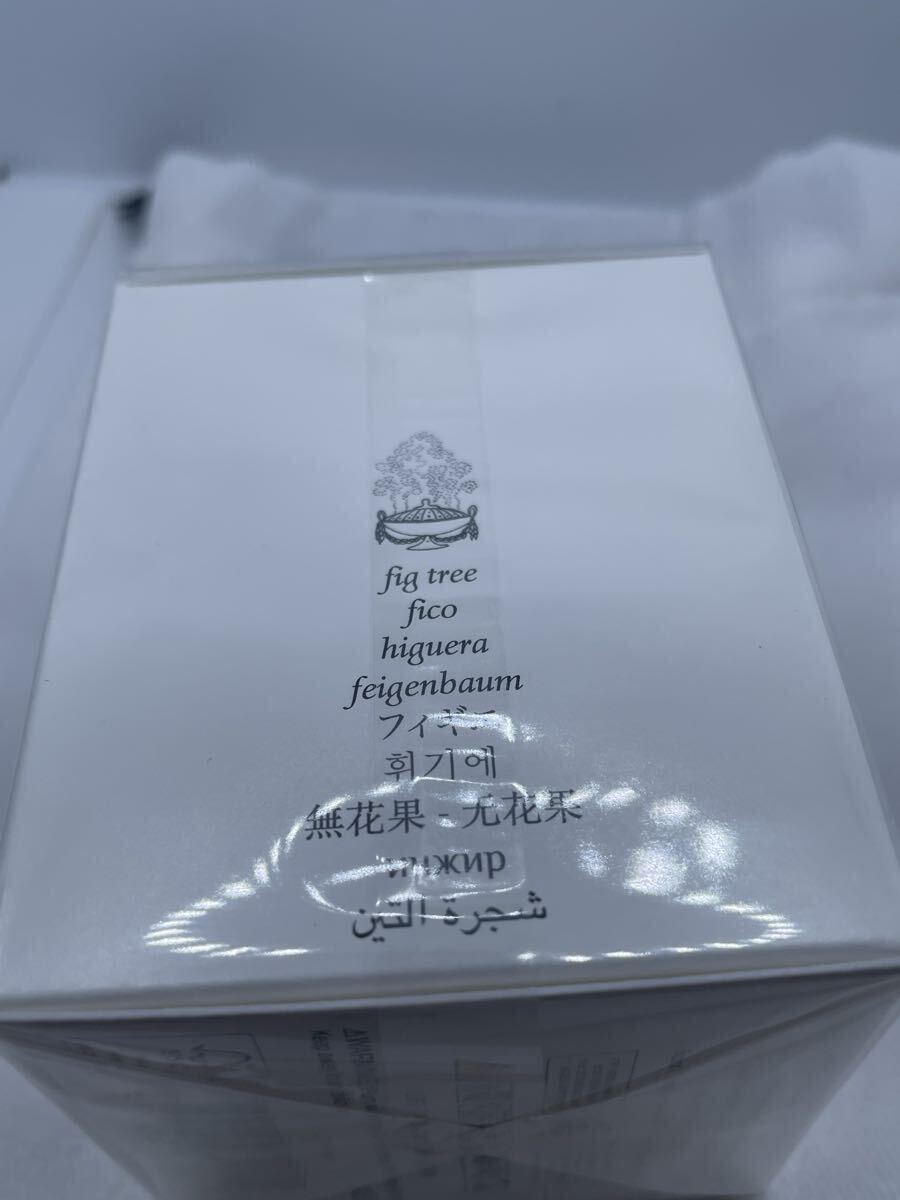 fig tree
fico
higuera
feigenbaum
フィギエ
휘기에
無花果 - 无花果
инжир
شجرة التين